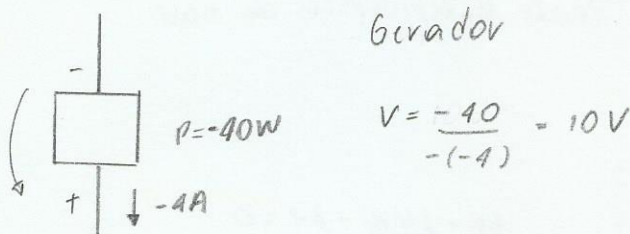 Gerador
-
P=-40W
V = -40 / -(-4) = 10V
+
-4A